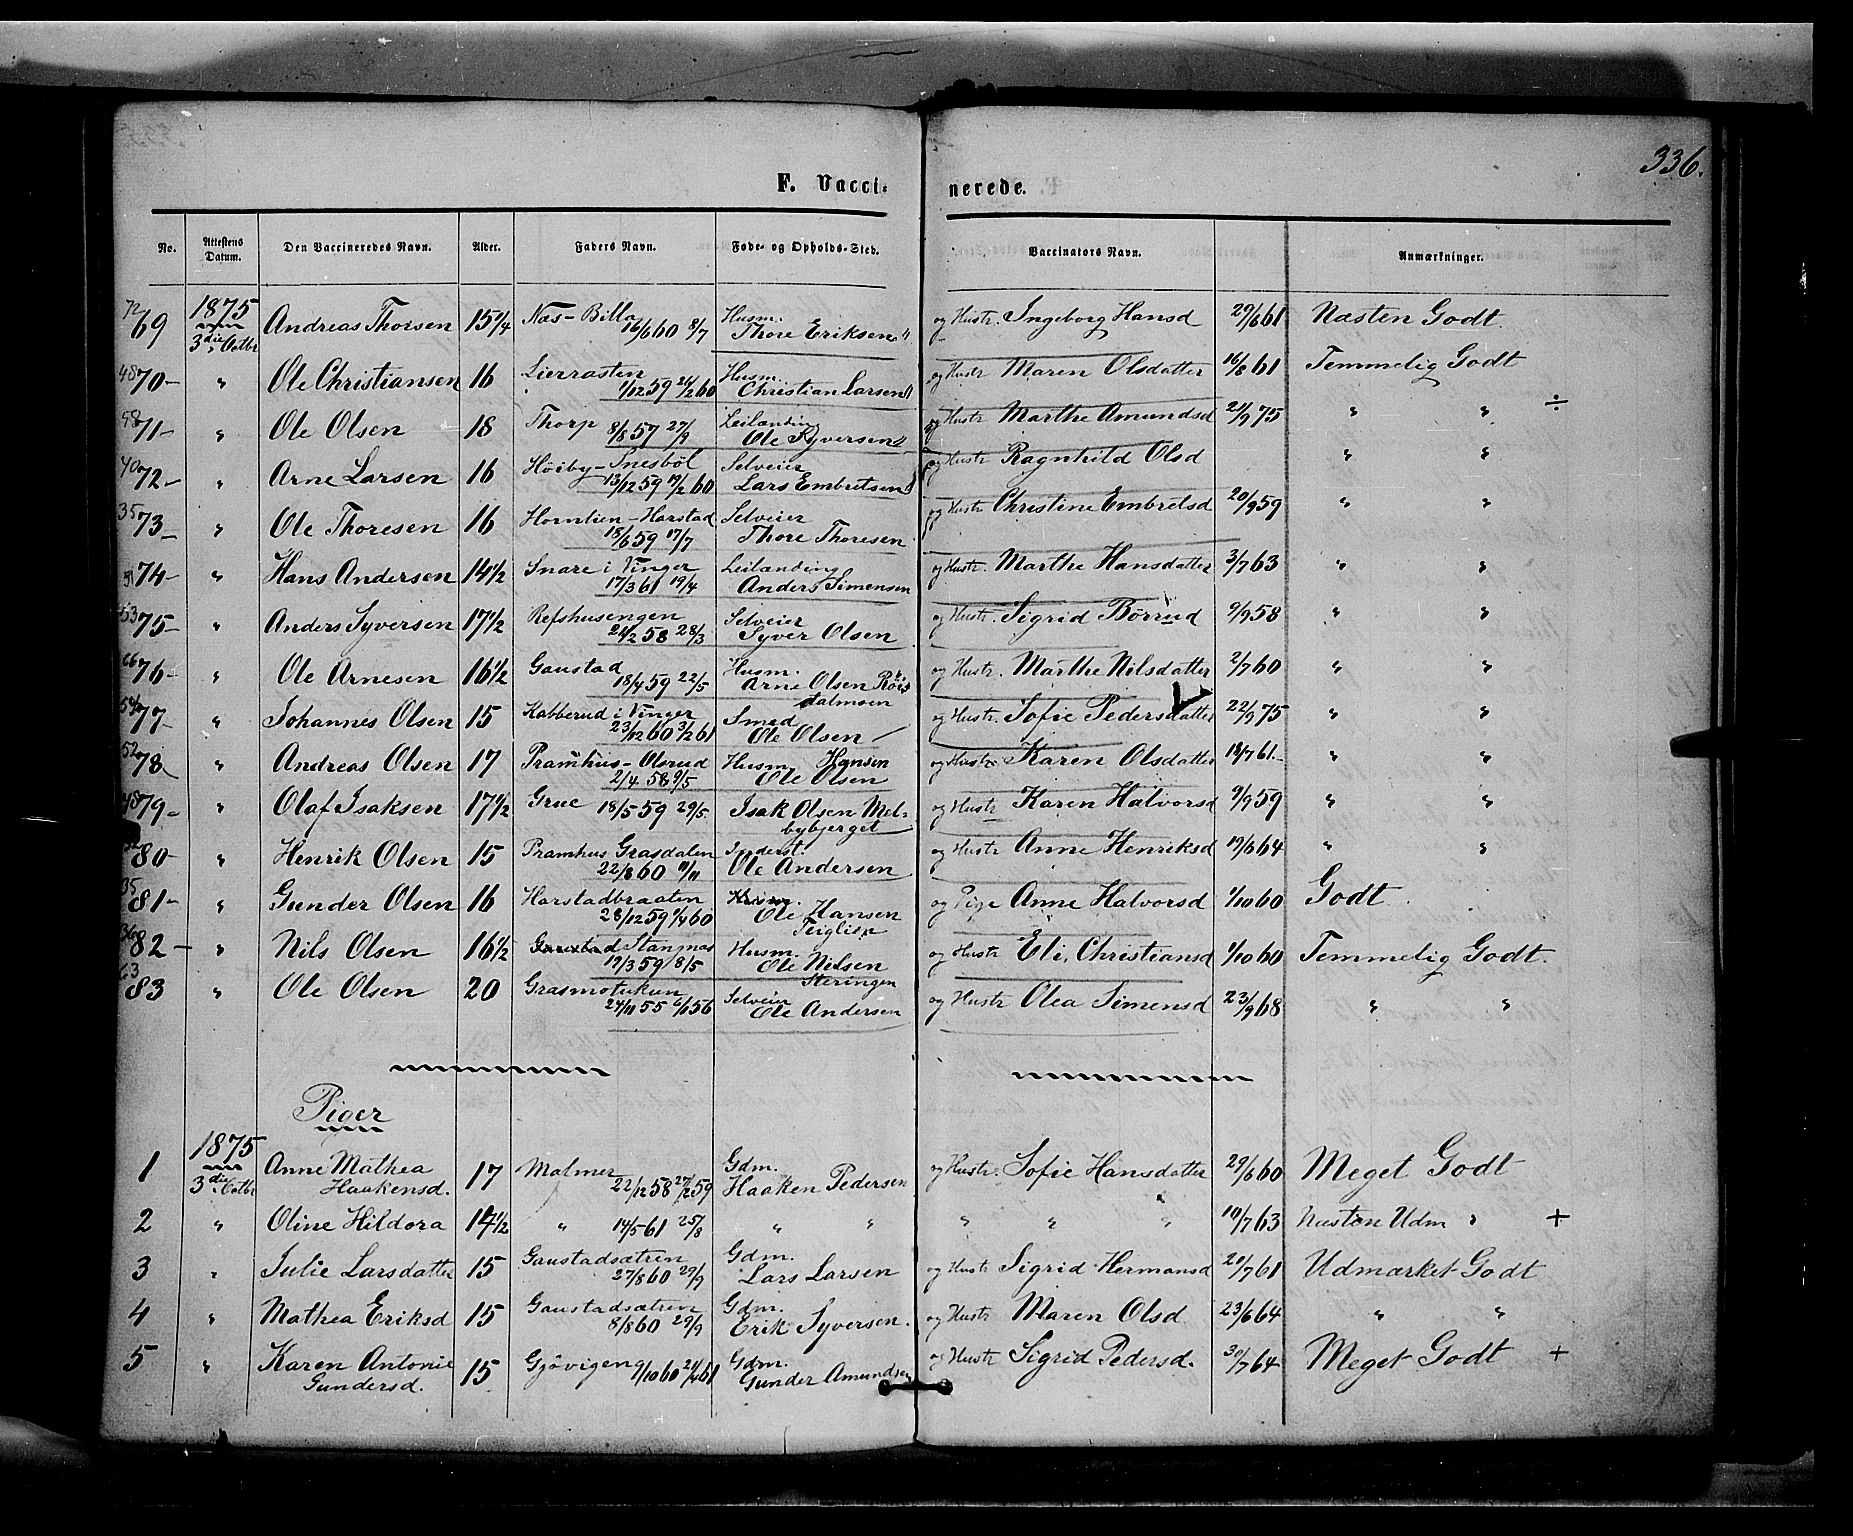 336.
F. Vacci- nerede.
No. Attestens Datum. Den Vaccineredes Navn. Alder. Faders Navn. Føde- og Opholds-Sted. Vaccinators Navn. Anmærkninger.
72 69 1875 3die Octbr Andreas Thorsen 15 1/4 Næs-Billa 16/6 60 8/7 Husm. Thore Eriksen og Hustr. Ingeborg Hansd 29/6 61 Næsten Godt.
48 70- " Ole Christiansen 16 Lierrasten 1/12 59 24/2 60 Husm. Christian Larsen og Hustr Maren Olsdatter 16/8 61 Temmelig Godt
58 71- " Ole Olsen 18 Thorp 8/8 57 27/9 Leilænding Ole Syversen og Hustr Marthe Amundsd 21/9 75 " " ÷
40 72- " Arne Larsen 16 Høiby-Snesböl 13/12 59 19/2 60 Selveier Lars Embretsen og Hustr Ragnhild Olsd " "
35 73- " Ole Thoresen 16 Hornlien-Harstad 18/6 59 17/7 Selveier Thore Thoresen og Hustr Christine Embretsd 20/9 59 " "
74- " Hans Andersen 14 1/2 Snare i Vinger 17/3 61 19/4 Leilænding Anders Simensen og Hustr. Marthe Hansdatter 3/7 63 " "
53 75- " Anders Syversen 17 1/2 Refshusengen 21/2 58 28/3 Selveier Syver Olsen og Hustr. Sigrid Börrud 9/9 58 " "
76- " Ole Arnesen 16 1/2 Gaustad 18/4 59 22/5 Husm. Arne Olsen og Hustr. Marthe Nilsdatter 2/7 60 " "
77- " Johannes Olsen 15 Kabberud i Vinger 23/12 60 3/2 61 Smed Ole Olsen og Hustr. Sofie Pedersdatter 22/9 75 " "
52 78 " Andreas Olsen 17 Pramhus-Olsrud 2/4 58 9/5 Husm Hansen Ole Olsen og Hustr Karen Olsdatter 18/7 61. " "
79- " Olaf Isaksen 17 1/2 Grue 18/5 59 29/5. Isak Olsen Mel- bybjerget og Hustr Karen Halvorsd 9/9 59 " "
80- " Henrik Olsen 15 Pramhus Grasdalen 22/8 60 11/11 Inderst. Ole Andersen og Hustr Anne Henriksd 19/6 64 " "
35 81- " Gunder Olsen 16 Harstadbraaten 28/12 59 9/4 60 Ole Hansen og Pige Anne Halvorsd 1/10 60 Godt
82- " Nils Olsen 16 1/2 Gaustad Stangnæs 19/3 59 8/5 Husm. Ole Nilsen Steringen og Hustr Eli Christiansd 1/10 60 Temmelig Godt.
63 83 " Ole Olsen 20 24/11 55 6/1 56 Selveier Ole Andersen og Hustr Olea Simensd 23/9 68 " "
Piger
1 1875 3die Octbr Anne Mathea Haakensd. 17 Malmer 22/12 58 27/2 59 Gdm. Haaken Pedersen og Hustr. Sofie Hansdatter 29/6 60 Meget Godt
2 " Oline Hildora 14 1/2 " 14/5 61 25/8 " " " " " 10/7 63 Næsten Udm " +
3 " Julie Larsdatter 15 Gaustadsætren 27/8 60 29/9 Gdm. Lars Larsen og Hustr Sigrid Hermansd 20/7 61 Udmærket Godt
4 " Mathea Eriksd 15 Gaustadsætren 8/8 60 29/9 Gdm. Erik Syversen. og Hustr Maren Olsd 23/6 64 " "
5 " Karen Antonie Gundersd. 15 Gjövigeng 1/10 60 21/4 61 Gdm. Gunder Amundsen og Hustr Sigrid Pedersd. 30/7 64 Meget Godt +